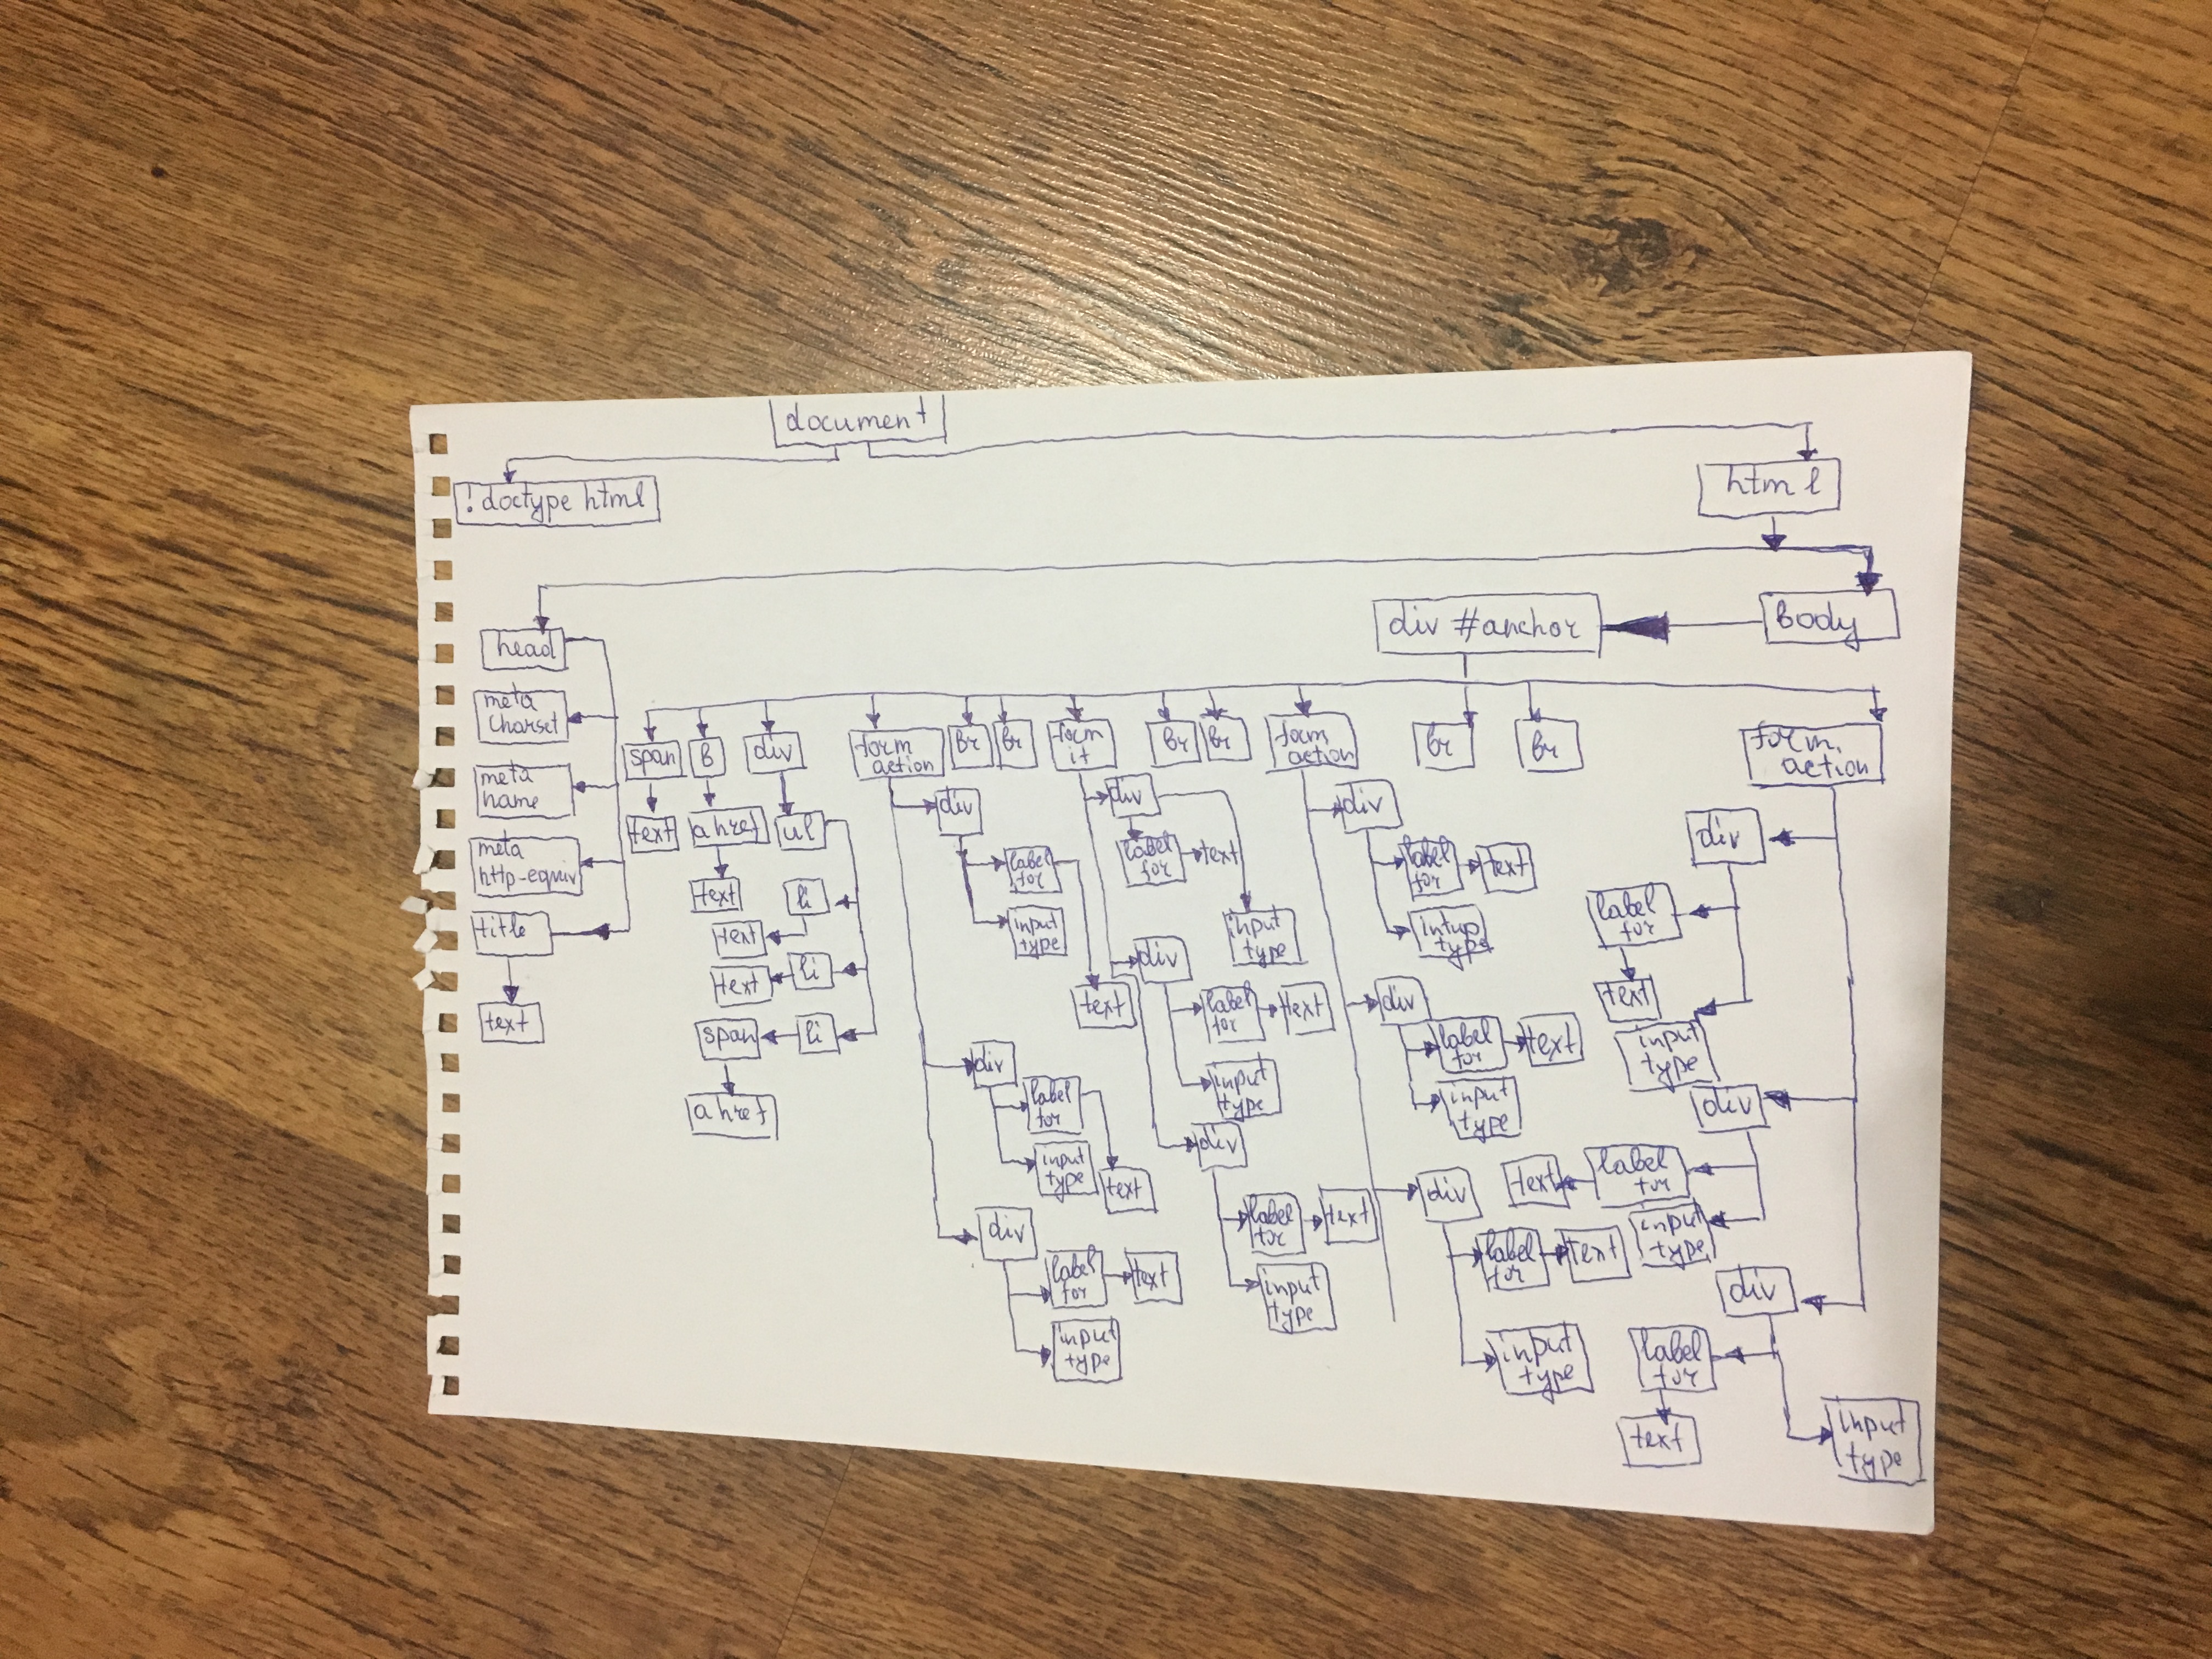 document
!doctype html
html
head
meta
charset
meta
name
meta
http-equiv
title
text
div #anchor
Body
span
text
B
a href
text
div
ul
li
text
li
text
li
span
a href
form
action
div
label
for
text
input
type
div
label
for
text
input
type
div
label
for
text
input
type
Br
Br
form
it
div
label
for
text
input
type
div
label
for
text
input
type
div
label
for
text
input
type
Br
Br
form
action
div
label
for
text
intup
type
div
label
for
text
input
type
div
label
for
text
input
type
Br
Br
form
action
div
label
for
text
input
type
div
label
for
text
input
type
div
label
for
text
input
type